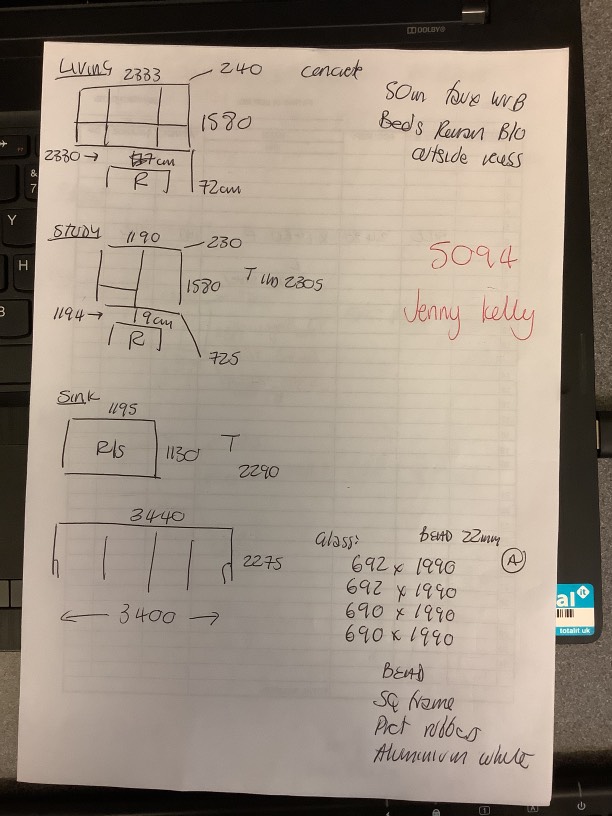 Living 2333 240 concrete
1580
2330 → 7cm
R 72cm
50m faux WVB
Beds Rewan B/O
outside recess
5094
Jenny Kelly
Study 1190 230
1580 T 2305
1194 → 19cm
R
725
Sink
1195
R/S 1130 T
2290
3440
2275
3400
Glass: BEAD 22mm
A
692 x 1990
692 x 1990
690 x 1990
690 x 1990
BEAD
SQ frame
rubbers
Aluminium white
DOLBY
Y
H
&
7
al it
totalit uk